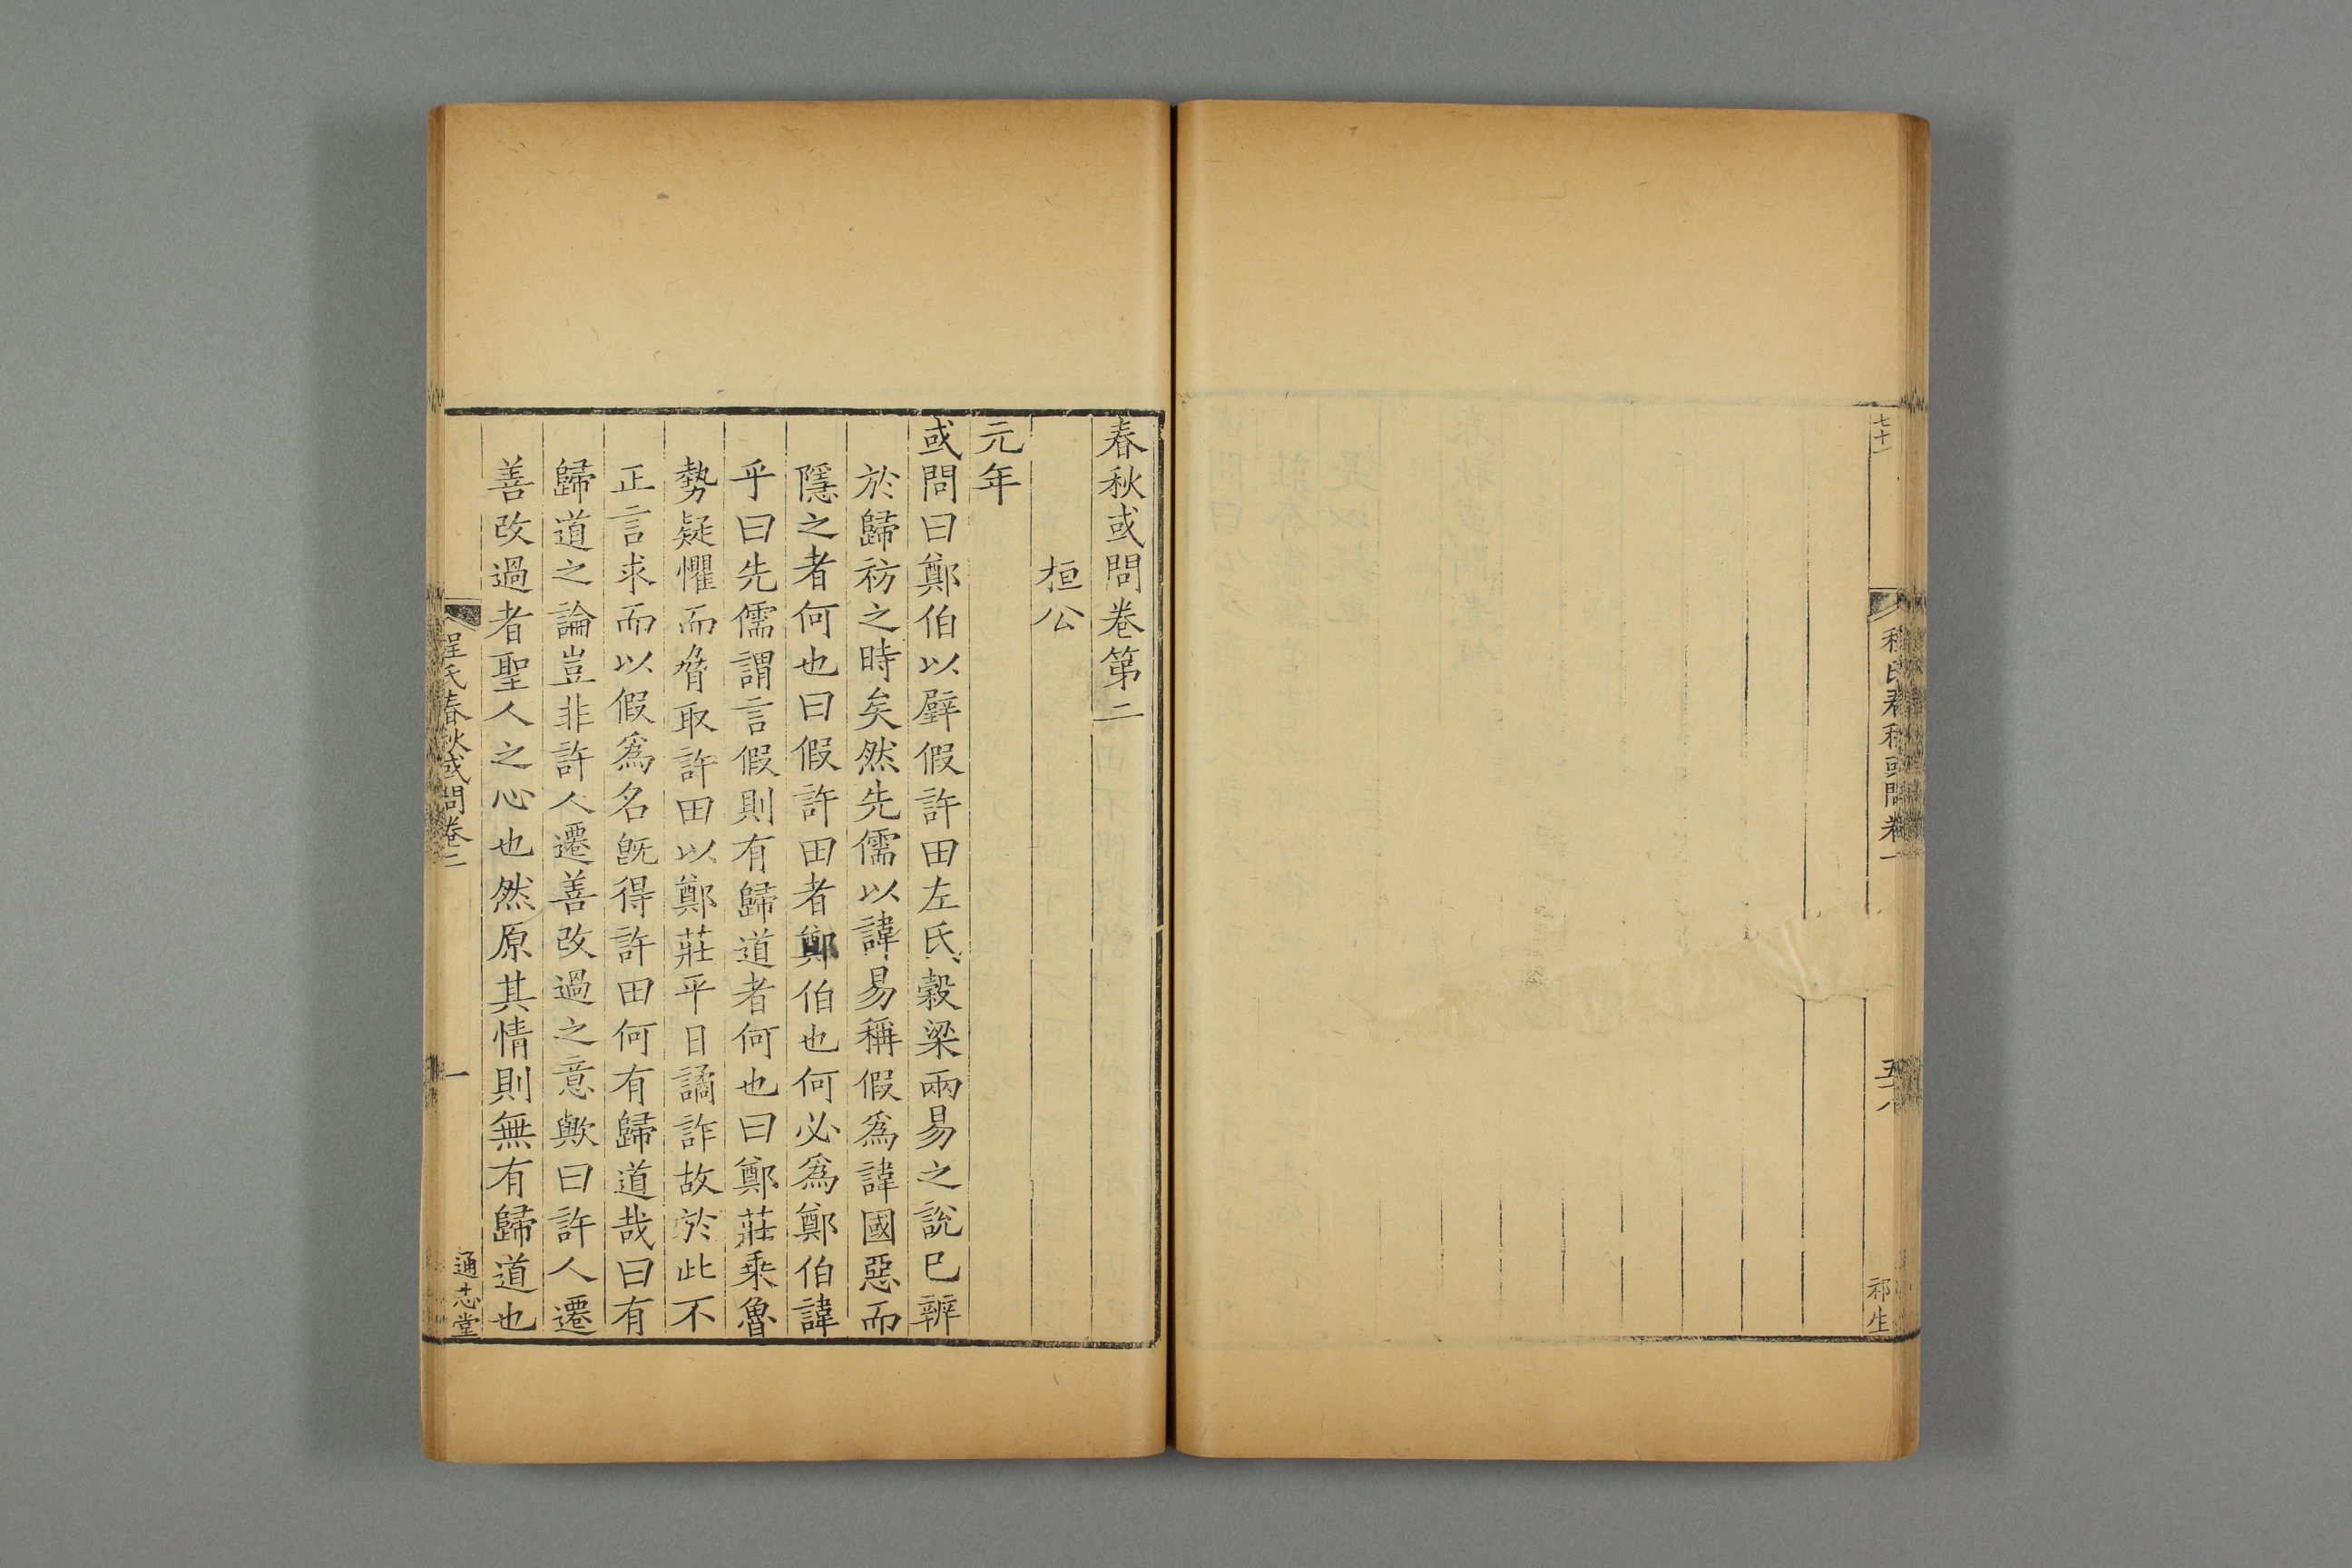 春秋或問卷第二
桓公
元年
或問曰鄭伯以璧假許田左氏穀梁兩易之說已辨
於歸祊之時矣然先儒以諱易稱假爲諱國惡而
隱之者何也曰假許田者鄭伯也何必爲鄭伯諱
乎曰先儒謂言假則有歸道者何也曰鄭莊乘魯
勢疑懼而脅取許田以鄭莊平日譎詐故於此不
正言求而以假爲名旣得許田何有歸道哉曰有
歸道之論豈非許人遷善改過之意歟曰許人遷
善改過者聖人之心也然原其情則無有歸道也
程氏春秋或問卷二
一
通志堂
程氏春秋或問卷一
祁生